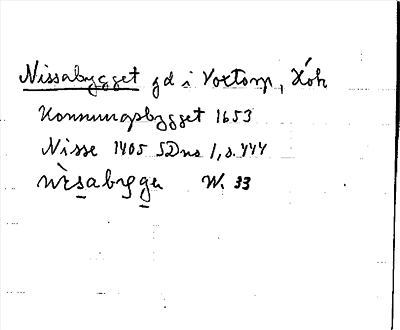 Nissabygget gd i Voxtorp, Höks
Konnungsbygget 1653
Nisse 1405 SDns 1, s. 444
nìsabyge W. 33